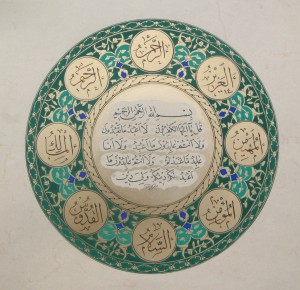 الرحمن
الرحيم
الملك
القدوس
السلام
المؤمن
المهيمن
العزيز
بسم الله الرحمن الرحيم
قل يا أيها الكافرون لا أعبد ما تعبدون
ولا أنتم عابدون ما أعبد ولا أنا
عابد ما عبدتم ولا أنتم عابدون ما
أعبد لكم دينكم ولي دين